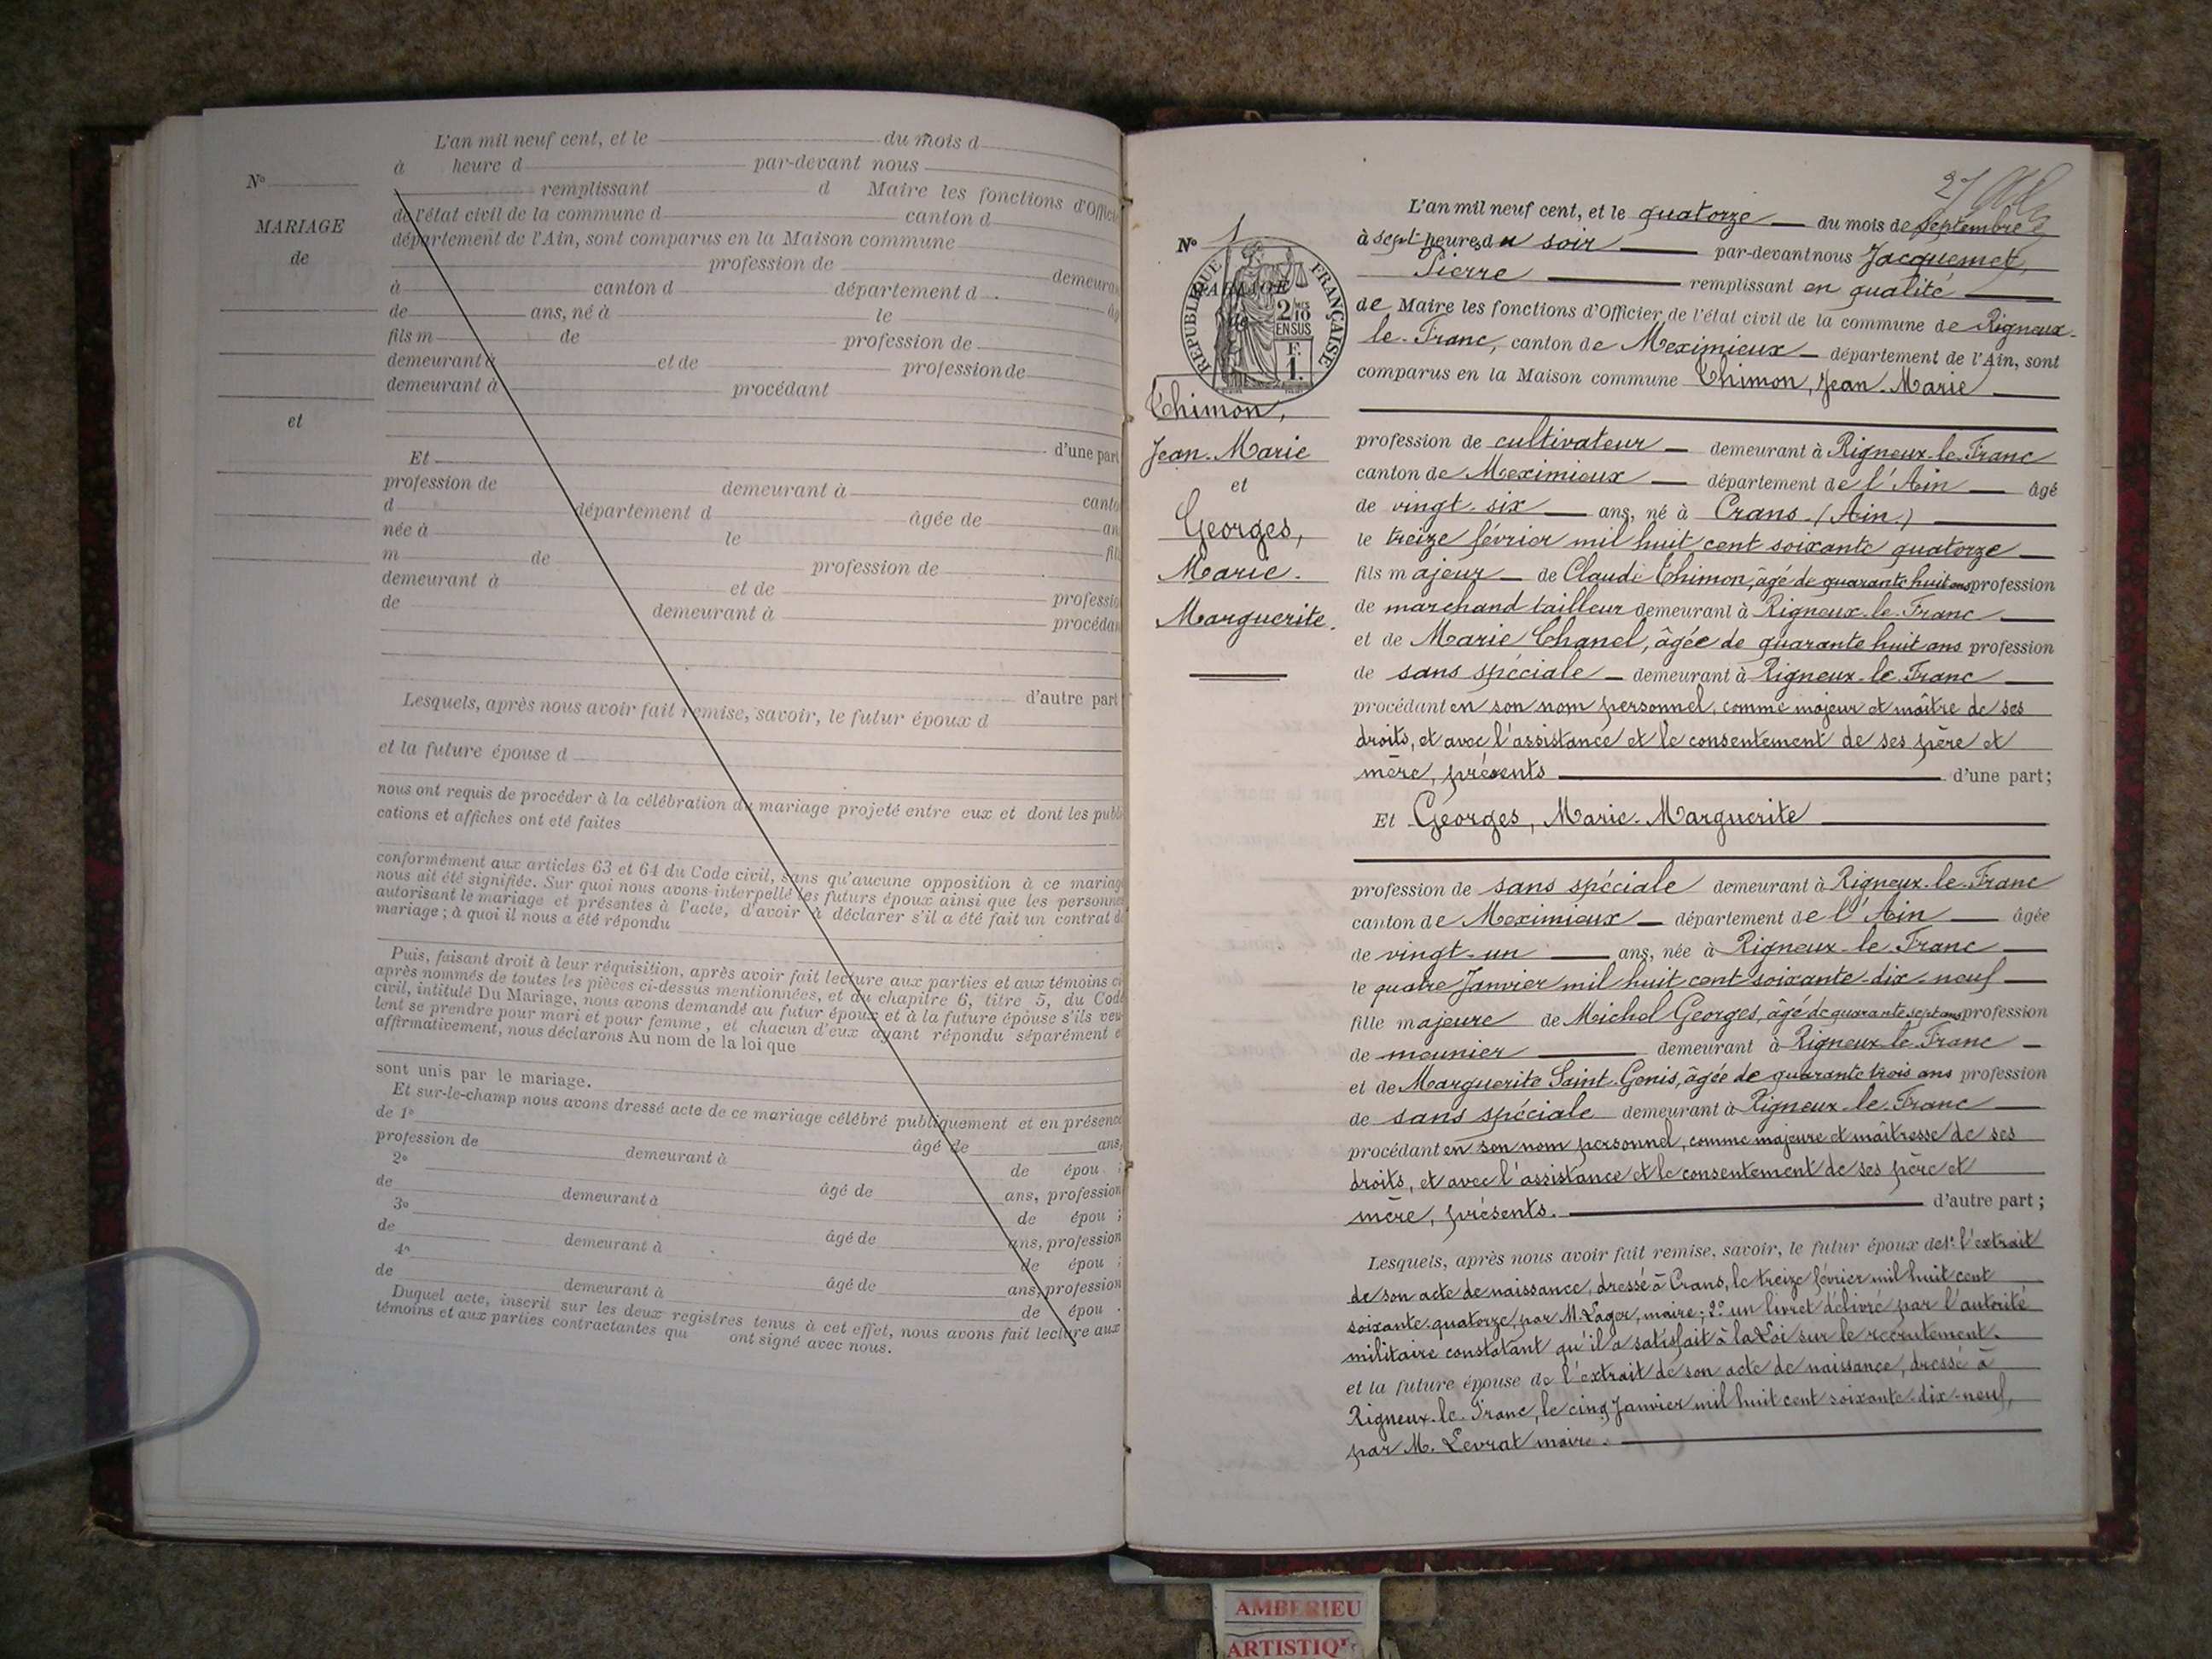 L'an mil neuf cent, et le du mois d
à heure d par-devant nous
remplissant d Maire les fonctions d'Offici
de l'état civil de la commune d canton d
département de l'Ain, sont comparus en la Maison commune
profession de demeuran
à canton d département d
de ans, né à le
fils m de profession de
demeurant à et de profession de
demeurant à procédant
d'une part
Et
profession de demeurant à canto
d département d âgée de an
née à le fil
m de profession de
demeurant à et de professio
de demeurant à procédan
d'autre part
Lesquels, après nous avoir fait remise, savoir, le futur époux d
et la future épouse d
nous ont requis de procéder à la célébration du mariage projeté entre eux et dont les publi
cations et affiches ont été faites
conformément aux articles 63 et 64 du Code civil, sans qu'aucune opposition à ce mariag
nous ait été signifiée. Sur quoi nous avons interpellé les futurs époux ainsi que les personne
autorisant le mariage et présentes à l'acte, d'avoir à déclarer s'il a été fait un contrat d
mariage ; à quoi il nous a été répondu
Puis, faisant droit à leur réquisition, après avoir fait lecture aux parties et aux témoins ci
après nommés de toutes les pièces ci-dessus mentionnées, et du chapitre 6, titre 5, du Code
civil, intitulé Du Mariage, nous avons demandé au futur époux et à la future épouse s'ils veu
lent se prendre pour mari et pour femme, et chacun d'eux ayant répondu séparément e
affirmativement, nous déclarons Au nom de la loi que
sont unis par le mariage.
Et sur-le-champ nous avons dressé acte de ce mariage célébré publiquement et en présence
de 1° âgé de ans,
profession de demeurant à de épou ;
2° âgé de ans, profession
de demeurant à de épou ;
3° âgé de ans, profession
de demeurant à de épou ;
4° âgé de ans, profession
de demeurant à de épou .
Duquel acte, inscrit sur les deux registres tenus à cet effet, nous avons fait lecture aux
témoins et aux parties contractantes qui ont signé avec nous.
N°
MARIAGE
de
et
27
N° 1
RÉPUBLIQUE FRANÇAISE
MARIAGE
de
2 MES
10
EN SUS
F.
1.
Thimon,
Jean-Marie
et
Georges,
Marie-
Marguerite.
L'an mil neuf cent, et le quatorze du mois de Septembre
à sept heures du soir par-devant nous Jacquemet,
Pierre remplissant en qualité
de Maire les fonctions d'Officier de l'état civil de la commune de Rigneux-
le-Franc, canton de Meximieux département de l'Ain, sont
comparus en la Maison commune Thimon, Jean-Marie
profession de cultivateur demeurant à Rigneux-le-Franc
canton de Meximieux département de l'Ain âgé
de vingt-six ans, né à Crans (Ain)
le treize février mil huit cent soixante quatorze
fils majeur de Claude Thimon, âgé de quarante huit ans profession
de marchand tailleur demeurant à Rigneux-le-Franc
et de Marie Chanel, âgée de quarante huit ans profession
de sans spéciale demeurant à Rigneux-le-Franc
procédant en son nom personnel, comme majeur et maître de ses
droits, et avec l'assistance et le consentement de ses père et
mère, présents d'une part ;
Et Georges, Marie-Marguerite
profession de sans spéciale demeurant à Rigneux-le-Franc
canton de Meximieux département de l'Ain âgée
de vingt-un ans, née à Rigneux-le-Franc
le quatre Janvier mil huit cent soixante-dix-neuf
fille majeure de Michel Georges, âgé de quarante sept ans profession
de meunier demeurant à Rigneux-le-Franc
et de Marguerite Saint-Genis, âgée de quarante trois ans profession
de sans spéciale demeurant à Rigneux-le-Franc
procédant en son nom personnel, comme majeure et maîtresse de ses
droits, et avec l'assistance et le consentement de ses père et
mère, présents. d'autre part ;
Lesquels, après nous avoir fait remise, savoir, le futur époux de 1° l'extrait
de son acte de naissance, dressé à Crans, le treize février mil huit cent
soixante-quatorze, par M. Lager, maire ; 2° un livret délivré par l'autorité
militaire constatant qu'il a satisfait à la Loi sur le recrutement.
et la future épouse de l'extrait de son acte de naissance, dressé à
Rigneux-le-Franc, le cinq Janvier mil huit cent soixante-dix-neuf,
par M. Levrat maire.
AMBERIEU
ARTISTIQ